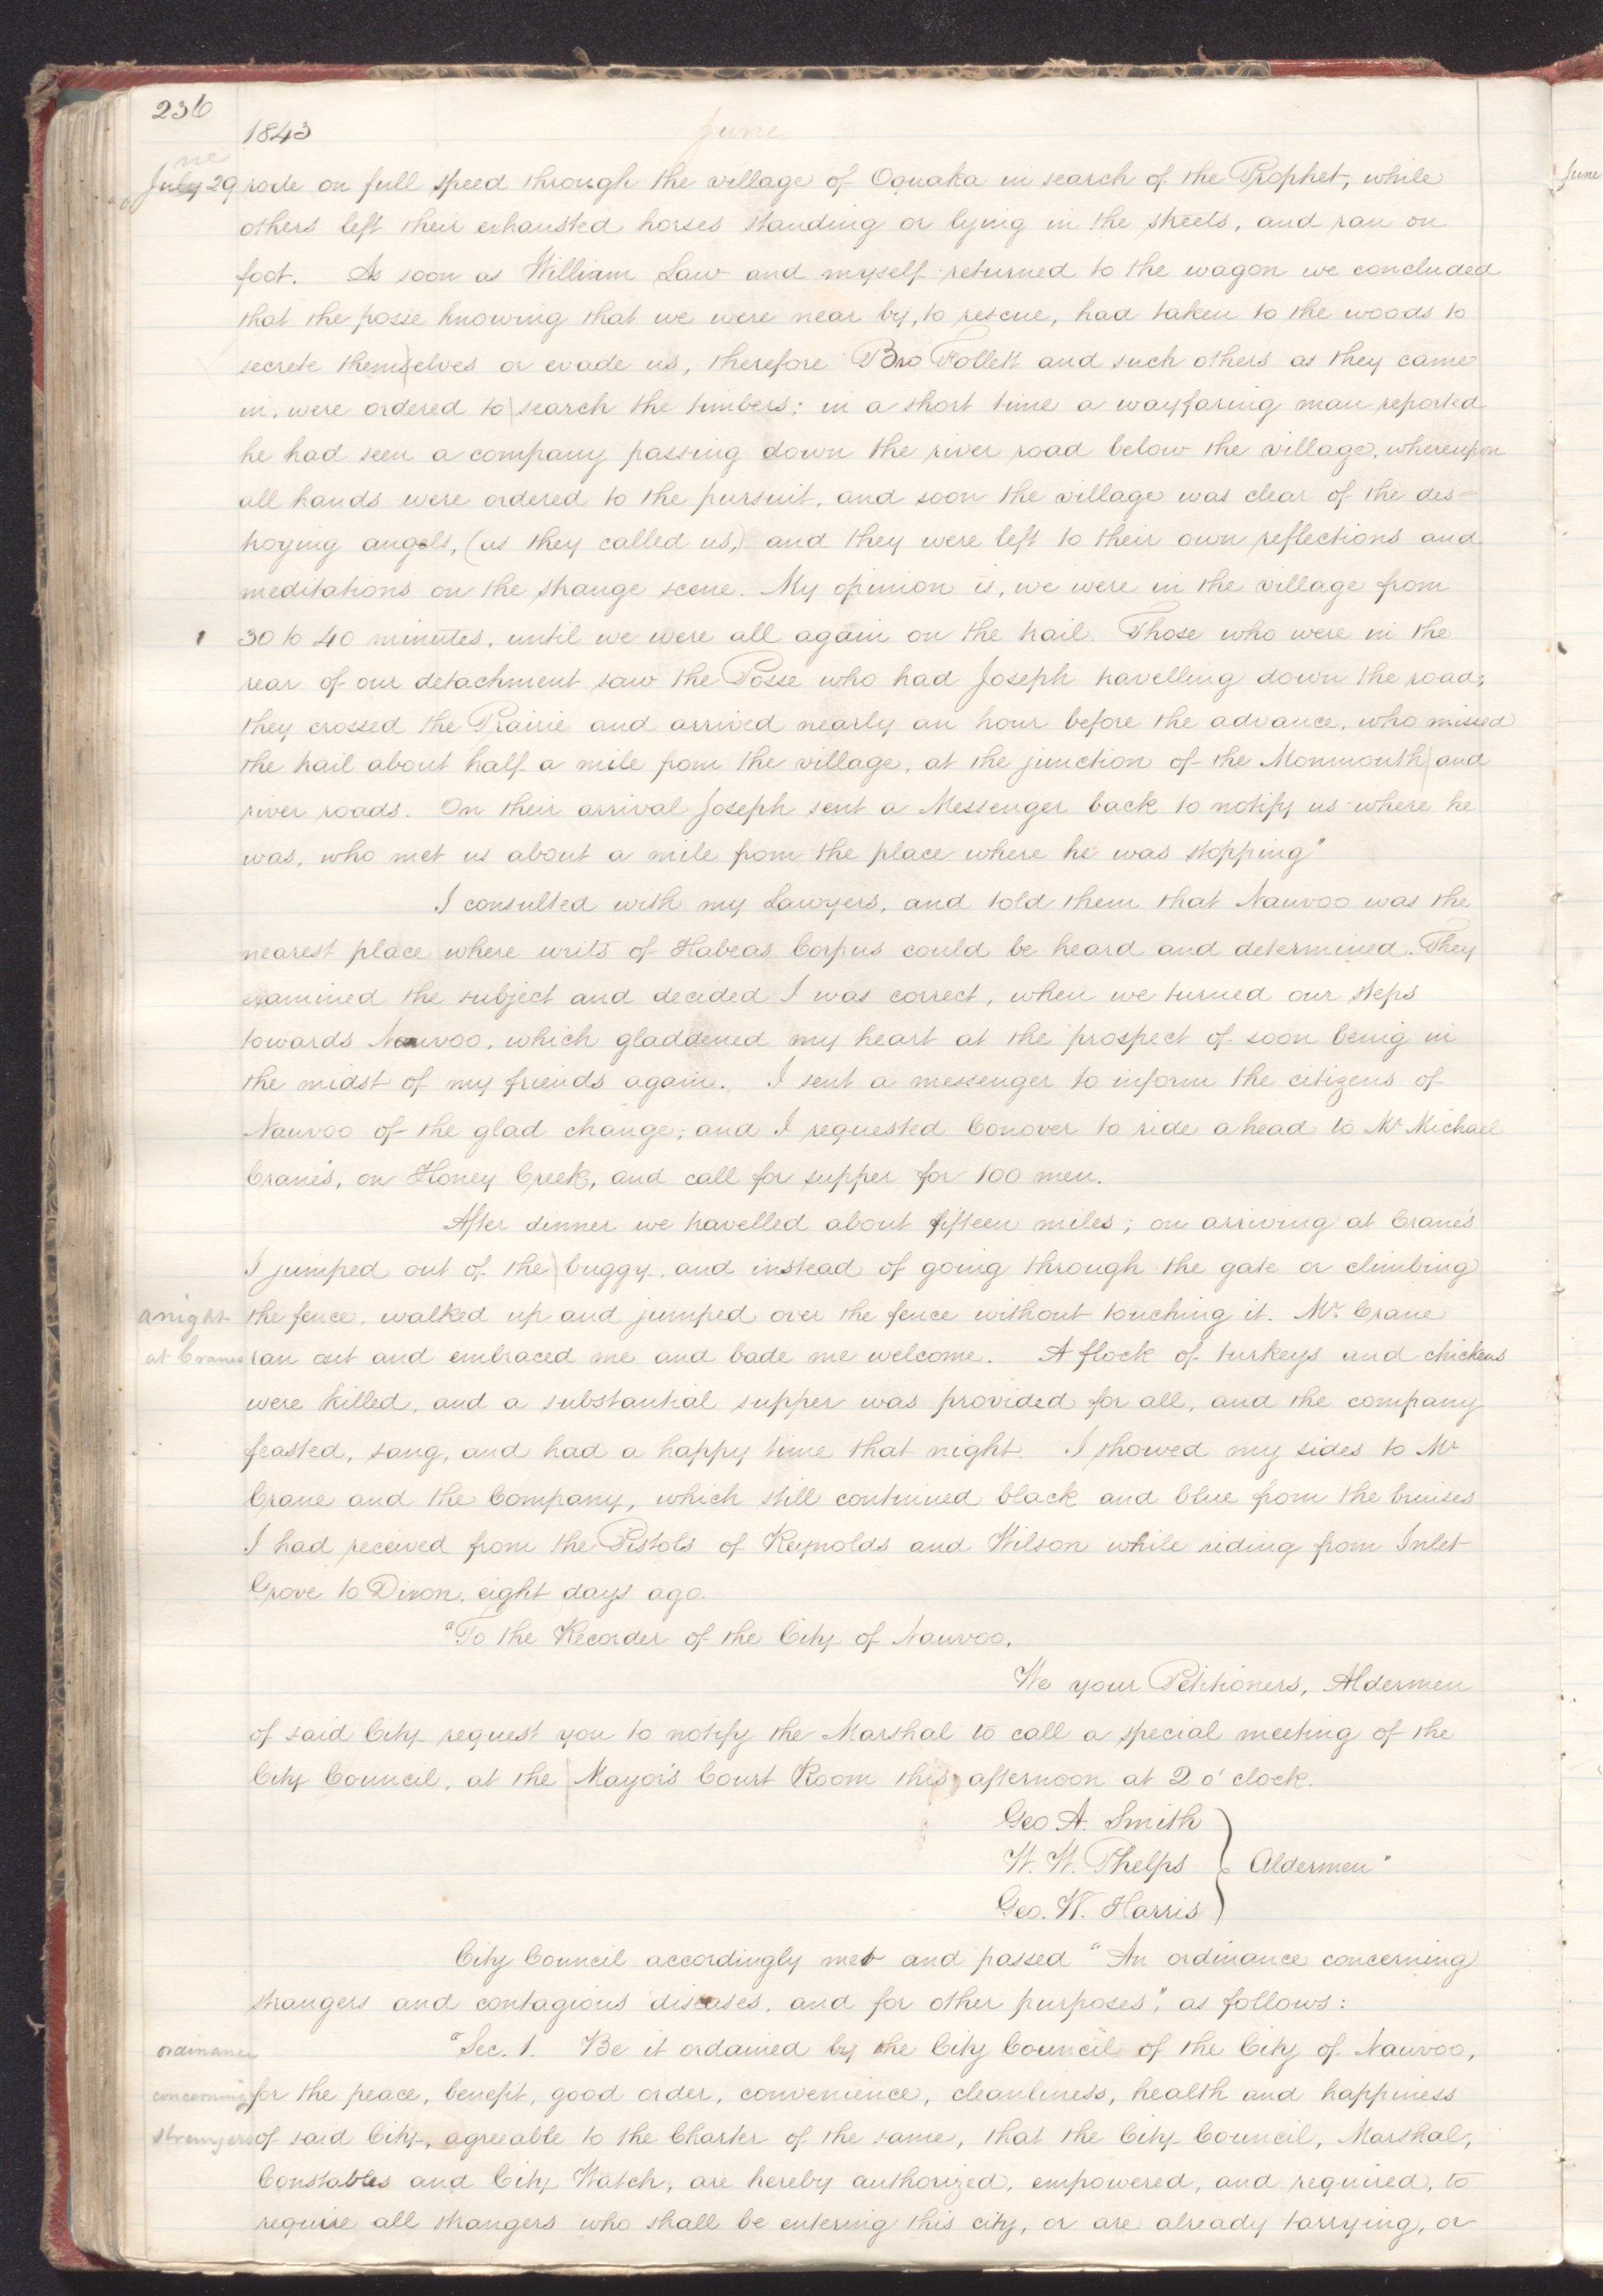 236
1843
June
ne
July 29 rode on full speed through the village of Oquaka in search of the Prophet, while
others left their exhausted horses standing or lying in the streets, and ran on
foot. As soon as William Law and myself returned to the wagon we concluded
that the posse knowing that we were near by, to rescue, had taken to the woods to
secrete themselves or evade us, therefore Bro Follett and such others as they came
in, were ordered to search the timbers; in a short time a wayfaring man reported
he had seen a company passing down the river road below the village, whereupon
all hands were ordered to the pursuit, and soon the village was clear of the des=
troying angels, (as they called us,) and they were left to their own reflections and
meditations on the strange scene. My opinion is, we were in the village from
30 to 40 minutes, until we were all again on the trail. Those who were in the
rear of our detachment saw the Posse who had Joseph travelling down the road;
they crossed the Prairie and arrived nearly an hour before the advance, who missed
the trail about half a mile from the village, at the junction of the Monmouth and
river roads. On their arrival Joseph sent a Messenger back to notify us where he
was, who met us about a mile from the place where he was stopping"
I consulted with my Lawyers, and told them that Nauvoo was the
nearest place where writs of Habeas Corpus could be heard and determined. They
examined the subject and decided I was correct, when we turned our steps
towards Nauvoo, which gladdened my heart at the prospect of soon being in
the midst of my friends again. I sent a messenger to inform the citizens of
Nauvoo of the glad change; and I requested Conover to ride ahead to Mr Michael
Crane's, on Honey Creek, and call for supper for 100 men.
After dinner we travelled about fifteen miles; on arriving at Crane's
I jumped out of the buggy, and instead of going through the gate or climbing
a night the fence, walked up and jumped over the fence without touching it. Mr. Crane
at Cranes ran out and embraced me and bade me welcome. A flock of turkeys and chickens
were killed, and a substantial supper was provided for all, and the company
feasted, sang, and had a happy time that night. I showed my sides to Mr
Crane and the Company, which still continued black and blue from the bruises
I had received from the Pistols of Reynolds and Wilson while riding from Inlet
Grove to Dixon, eight days ago.
"To the Recorder of the City of Nauvoo,
We your Petitioners, Aldermen
of said City request you to notify the Marshal to call a special meeting of the
City Council, at the Mayor's Court Room this afternoon at 2 o'clock.
Geo A. Smith
W. W. Phelps } Aldermen"
Geo. W. Harris
City Council accordingly met and passed "An ordinance concerning
strangers and contagious diseases, and for other purposes", as follows:
ordinance "Sec. 1. Be it ordained by the City Council of the City of Nauvoo,
concerning for the peace, benefit, good order, convenience, cleanliness, health and happiness
strangers of said City, agreeable to the Charter of the same, that the City Council, Marshal,
Constables and City Watch, are hereby authorized, empowered, and required, to
require all strangers who shall be entering this city, or are already tarrying, or
June